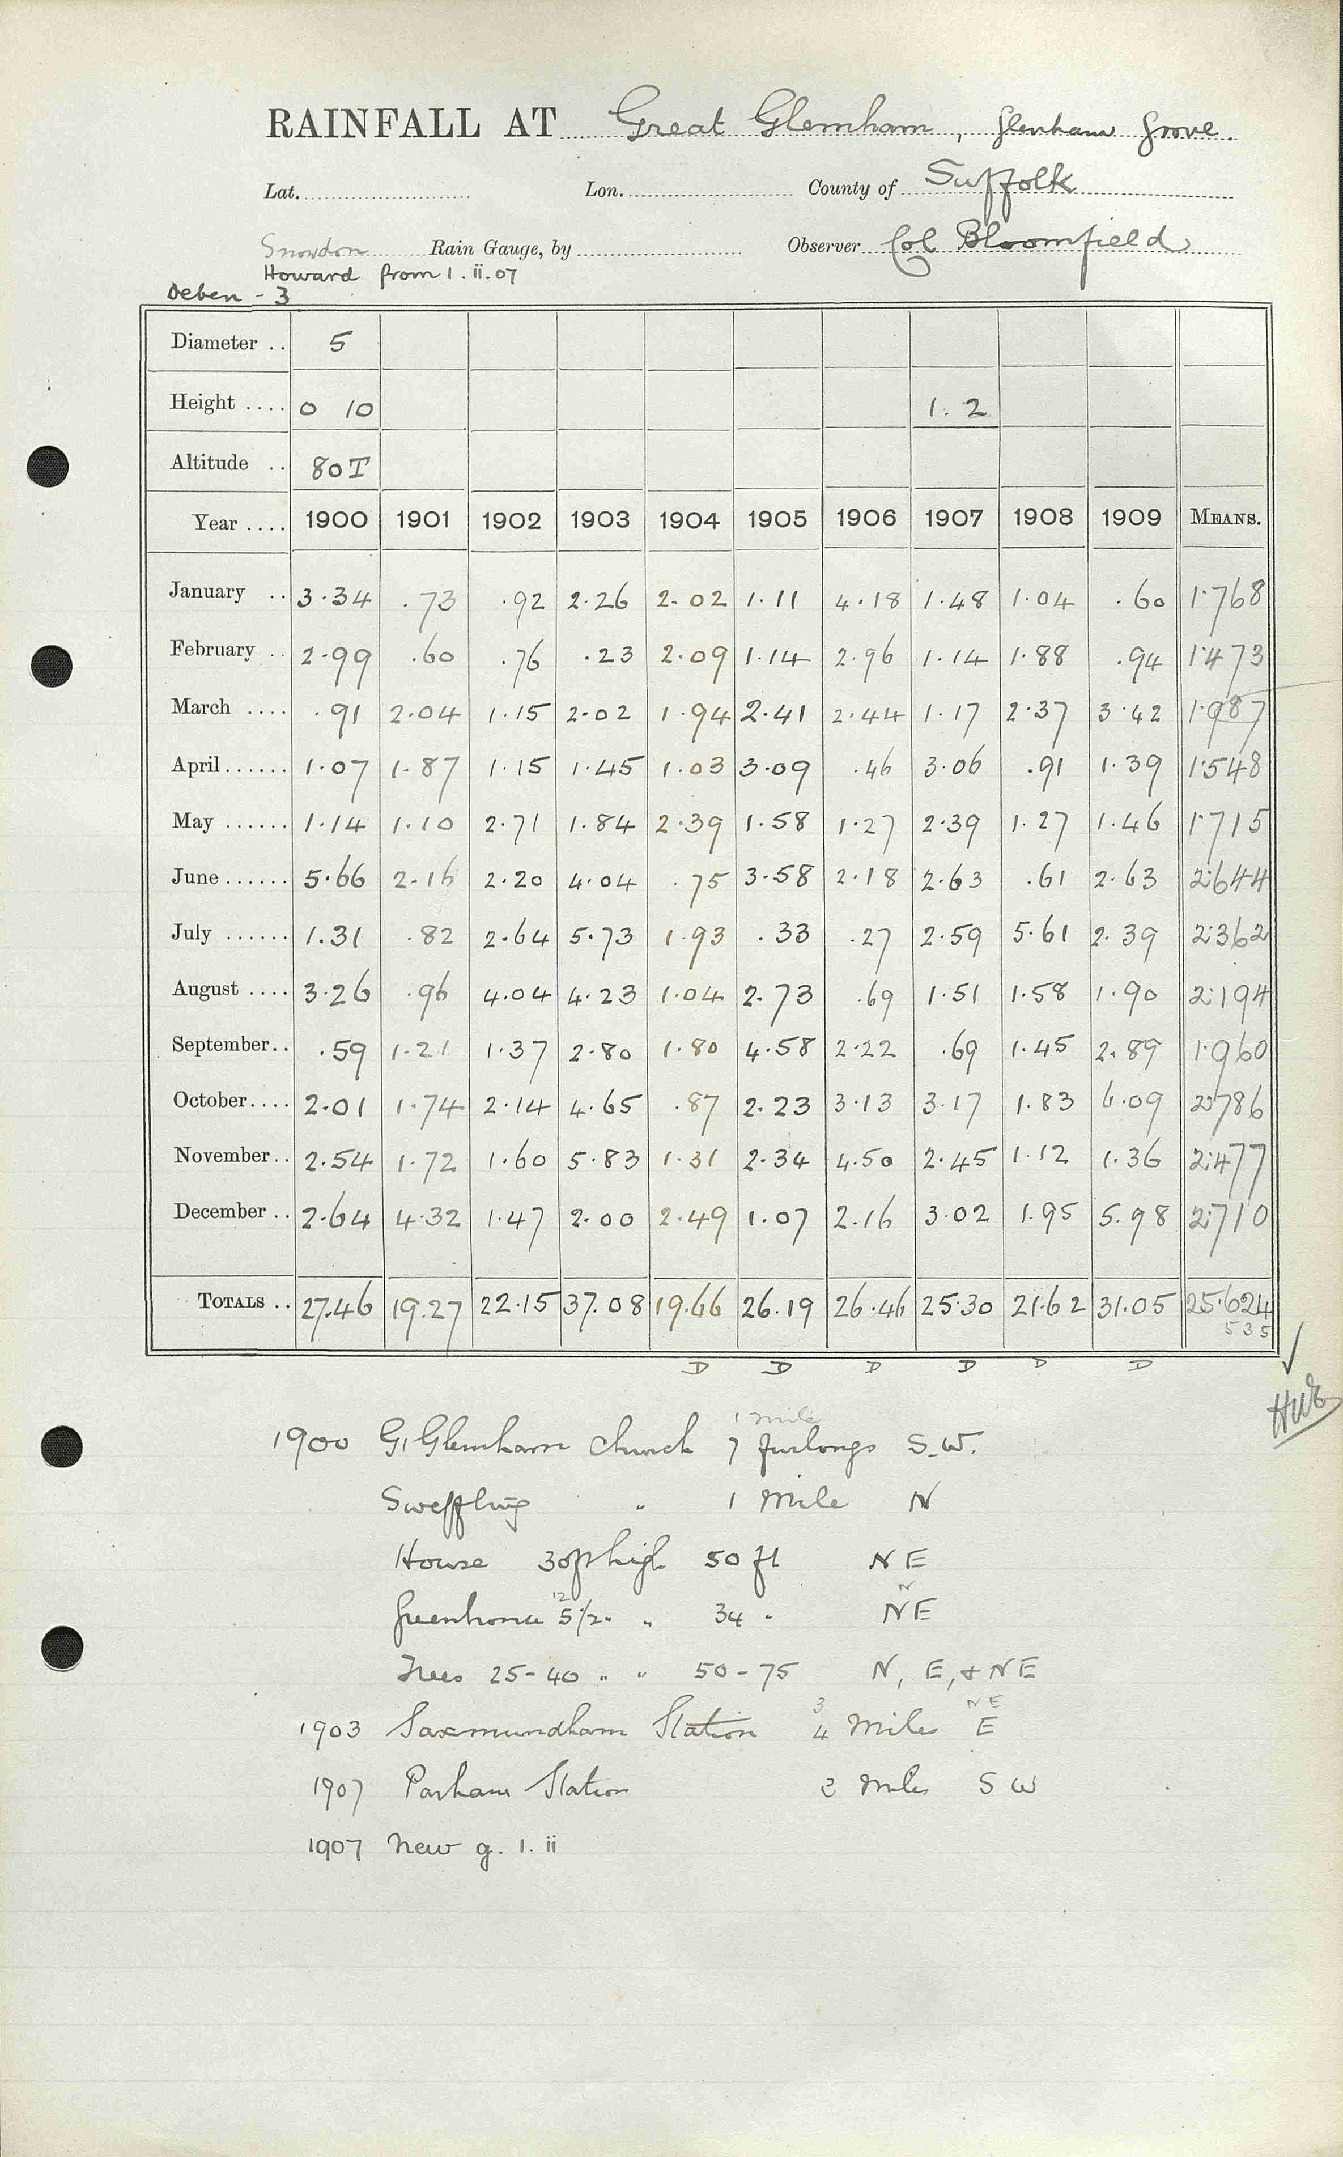 RAINFALL AT Great Glemham, Glenham Grove.
Lat. Lon. County of Suffolk
Snowdon Rain Gauge, by Observer Col Bloomfield
Howard from 1.ii.07
Deben - 3
Diameter .. 5
Height .... 0 10 1.2
Altitude .. 80T
Year .... 1900 1901 1902 1903 1904 1905 1906 1907 1908 1909 MEANS.
January .. 3.34 .73 .92 2.26 2.02 1.11 4.18 1.48 1.04 .60 1.768
February .. 2.99 .60 .76 .23 2.09 1.14 2.96 1.14 1.88 .94 1.473
March .... .91 2.04 1.15 2.02 1.94 2.41 2.44 1.17 2.37 3.42 1.987
April ...... 1.07 1.87 1.15 1.45 1.03 3.09 .46 3.06 .91 1.39 1.548
May ...... 1.14 1.10 2.71 1.84 2.39 1.58 1.27 2.39 1.27 1.46 1.715
June ...... 5.66 2.16 2.20 4.04 .75 3.58 2.18 2.63 .61 2.63 2.644
July ...... 1.31 .82 2.64 5.73 1.93 .33 .27 2.59 5.61 2.39 2.362
August .... 3.26 .96 4.04 4.23 1.04 2.73 .69 1.51 1.58 1.90 2.194
September .. .59 1.21 1.37 2.80 1.80 4.58 2.22 .69 1.45 2.89 1.960
October .... 2.01 1.74 2.14 4.65 .87 2.23 3.13 3.17 1.83 6.09 2.786
November .. 2.54 1.72 1.60 5.83 1.31 2.34 4.50 2.45 1.12 1.36 2.477
December .. 2.64 4.32 1.47 2.00 2.49 1.07 2.16 3.02 1.95 5.98 2.710
TOTALS .. 27.46 19.27 22.15 37.08 19.66 26.19 26.46 25.30 21.62 31.05 25.624
535
D D D D D D
1 mile
1900 G. Glemham Church 7 furlongs S.W.
Sweffling " 1 mile N
House 30ft high 50 ft NE
12 N
Greenhouse 5½" " 34 " NE
Trees 25-40 " " 50-75 N, E, & NE
3 NE
1903 Saxmundham Station 4 Miles E
1907 Parham Station 2 Miles SW
1907 New g. 1.ii